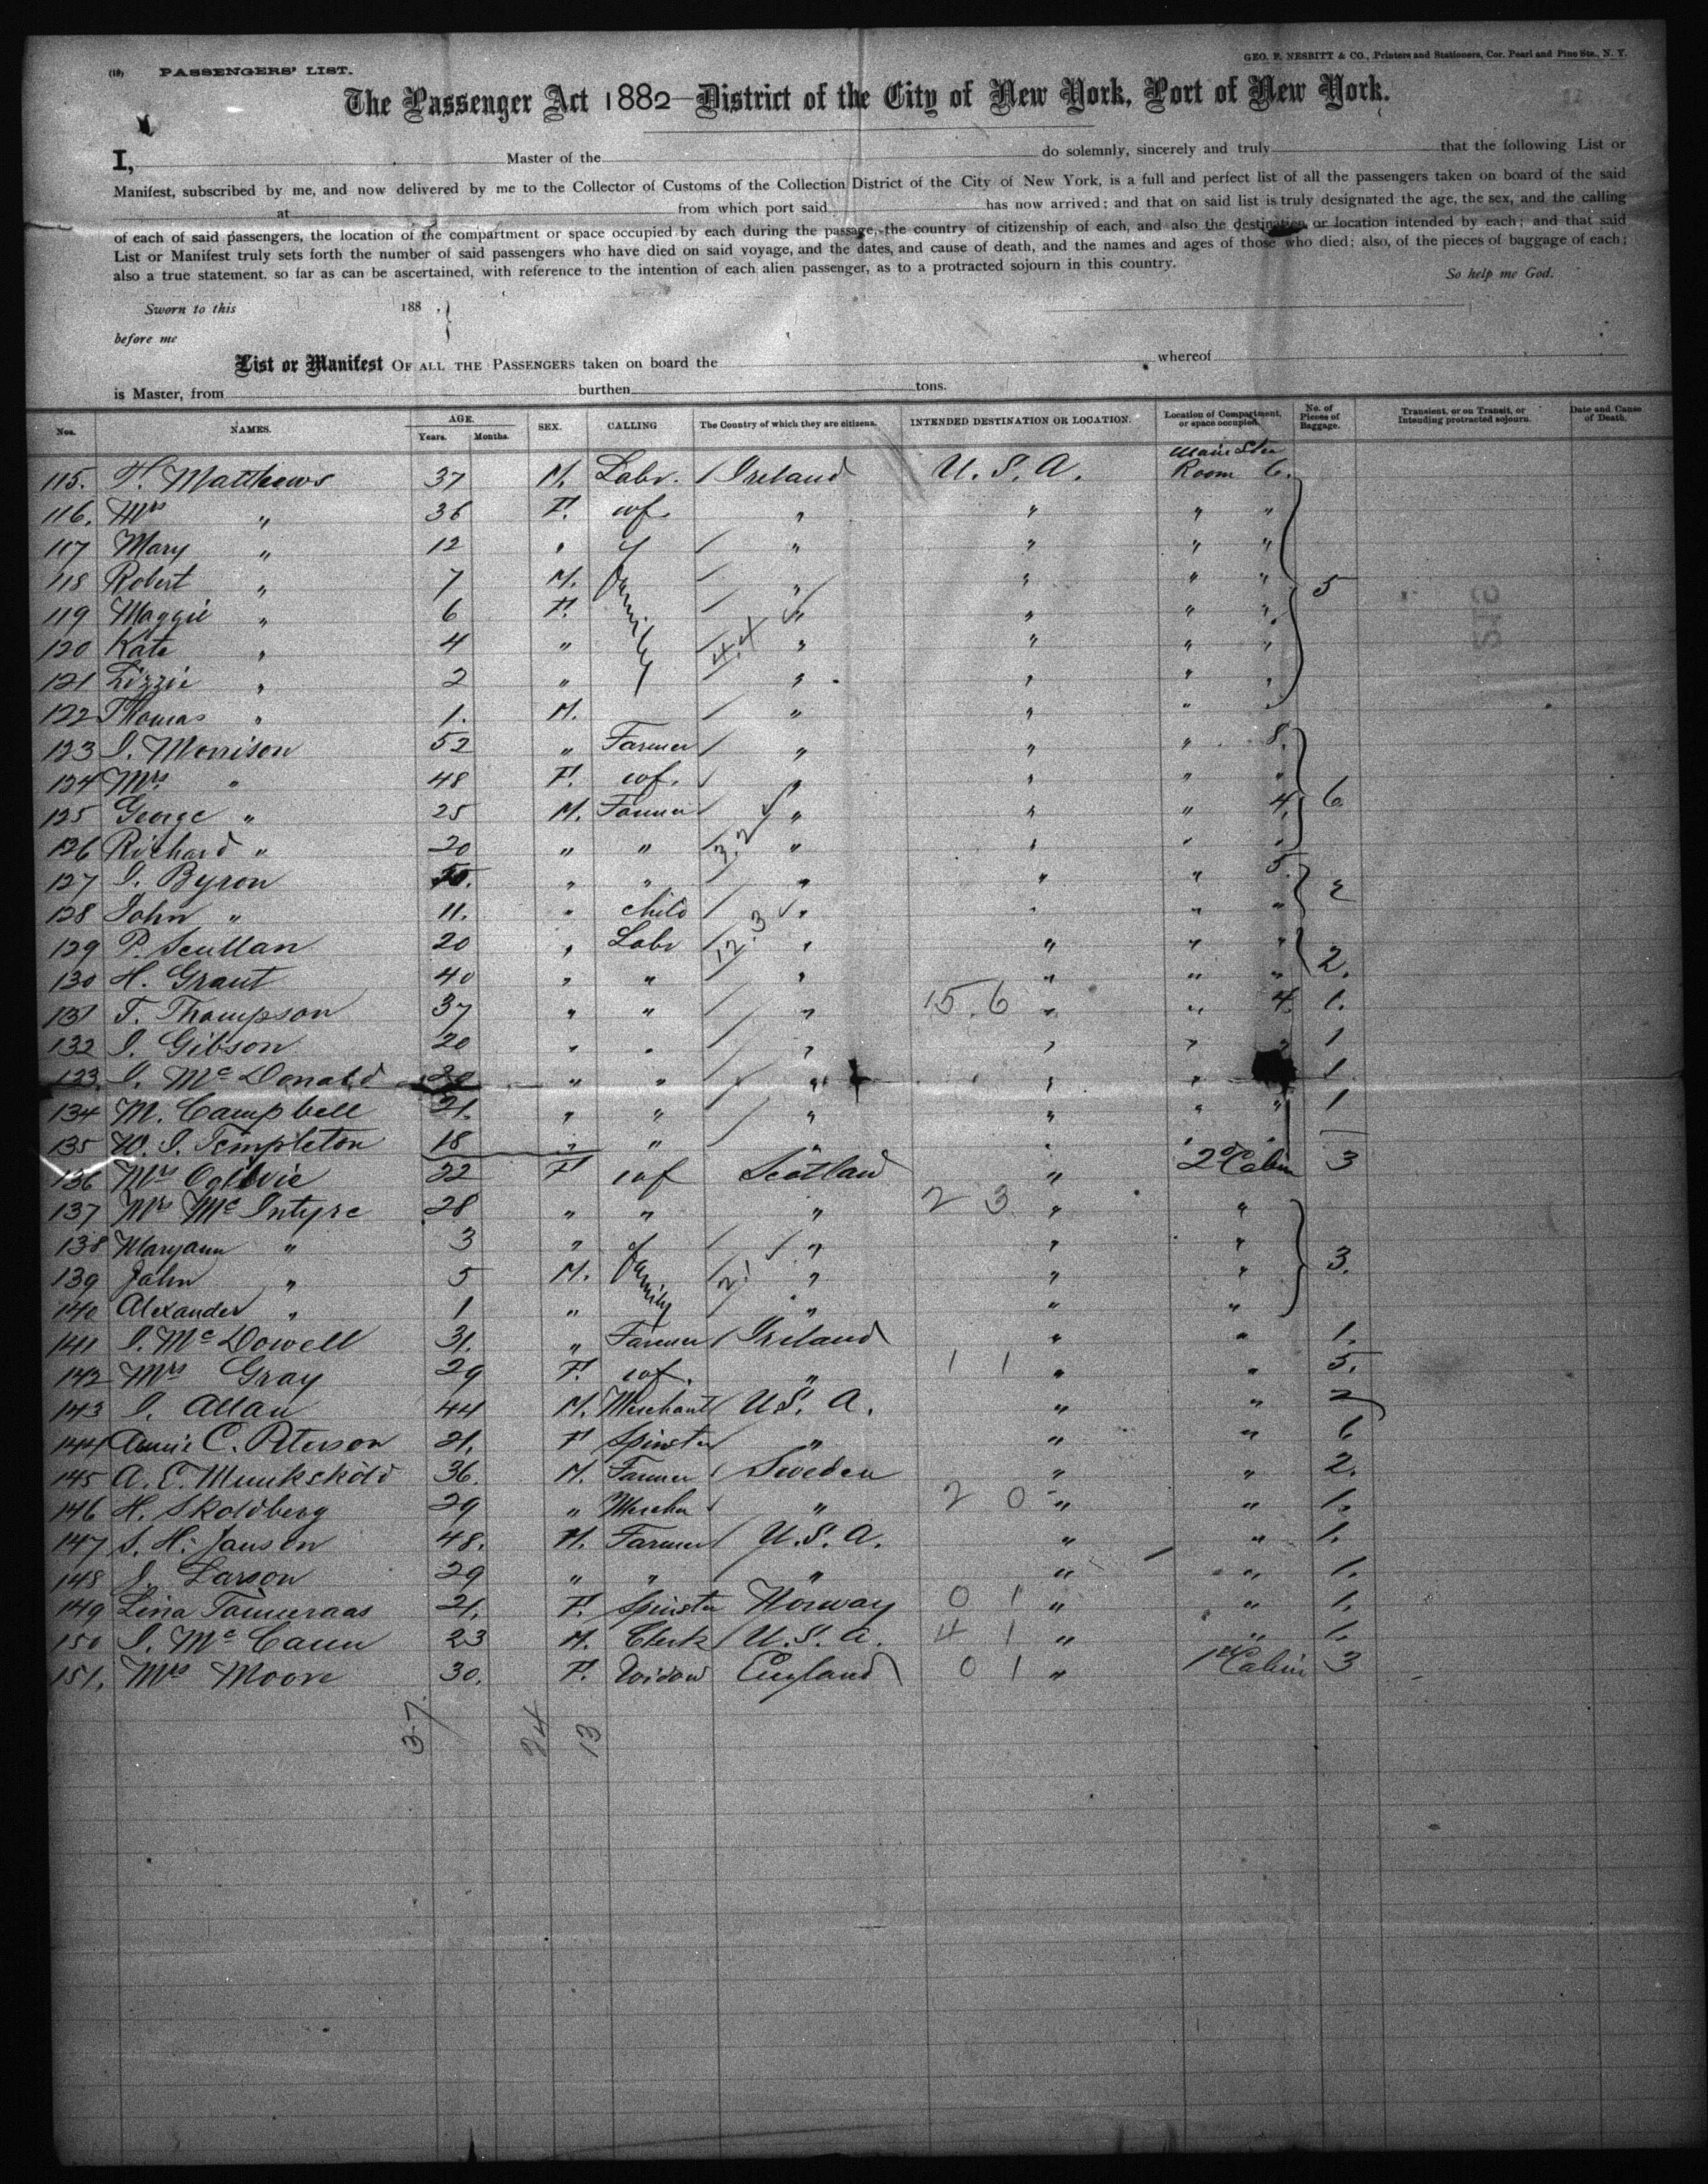 GEO. F. NESBITT & CO., Printers and Stationers, Cor. Pearl and Pine Sts., N. Y.
(19) PASSENGERS' LIST.
The Passenger Act 1882 District of the City of New York, Port of New York.
I, Master of the do solemnly, sincerely and truly that the following List or
Manifest, subscribed by me, and now delivered by me to the Collector of Customs of the Collection District of the City of New York, is a full and perfect list of all the passengers taken on board of the said
at from which port said has now arrived; and that on said list is truly designated the age, the sex, and the calling
of each of said passengers, the location of the compartment or space occupied by each during the passage, the country of citizenship of each, and also the destination or location intended by each; and that said
List or Manifest truly sets forth the number of said passengers who have died on said voyage, and the dates, and cause of death, and the names and ages of those who died; also, of the pieces of baggage of each;
also a true statement, so far as can be ascertained, with reference to the intention of each alien passenger, as to a protracted sojourn in this country. So help me God.
Sworn to this 188 ,
before me
List or Manifest OF ALL THE PASSENGERS taken on board the whereof
is Master, from burthen tons.
Nos. NAMES. AGE. Years. Months. SEX. CALLING The Country of which they are citizens. INTENDED DESTINATION OR LOCATION. Location of Compartment, or space occupied. No. of Pieces of Baggage. Transient, or on Transit, or Intending protracted sojourn. Date and Cause of Death.
115. T. Matthews 37 M. Labr. Ireland U. S. A. Room 6.
116. Mrs " 36 F. wf. " " " "
117 Mary " 12 " " " " "
118 Robert " 7 M. family " " " " 5
119 Maggie " 6 F. " " " "
120 Kate " 4 " 4.4 " " " "
121 Lizzie " 2 " " " " "
122 Thomas " 1. M. " " "
123 J. Morrison 52 " Farmer " " " 8.
124 Mrs " 48 F. wf. " " " "
125 George " 25 M. Farmer " " " 4. 6
126 Richard " 20 " " 3.2 " " " "
127 J. Byron " " " " " 5.
128 John " 11. " child " " " " 2
129 P. Scullan 20 " Labr 12.3 " " " "
130 H. Grant 40 " " " " " " 2.
131 T. Thompson 37 " " " 15 6 " " 4. 1.
132 J. Gibson 20 " " " " " " 1
133. J. McDonald 20 " " " " " 1
134 M. Campbell 21. " " " " " " 1
135 W. J. Templeton 18 " " " " " "
136 Mrs Ogilvie 22 F wf Scotland " 2d Cabin 3
137 Mrs McIntyre 28 " " " 2 3 " "
138 Maryann " 3 " " " "
139 John " 5 M. family 2.1 " " " 3.
140 Alexander " 1 " " " "
141 J. McDowell 31. " Farmer Ireland " " 1.
142 Mrs Gray 29 F. wf. " 1 1 " " 5.
143 J. Allan 44 M. Merchant U.S. A. " " 2
144 Annie C. Peterson 21. F Spinster " " " 6
145 A. E. Munkskold 36. M. Farmer Sweden " " 2.
146 H. Skoldberg 29 " Mercha " 2 0 " " 1.
147 S. H. Janson 48. M. Farmer U.S.A. " " 1.
148 J. Larson 29 " " " " " 1.
149 Lina Tommeraas 21. F. Spinster Norway 0 1 " " 1.
150 J. McCann 23 M. Clerk U.S.A. 4 1 " " 1.
151. Mrs Moore 30. F. Widow England 0 1 " 1st Cabin 3
37. 24 13